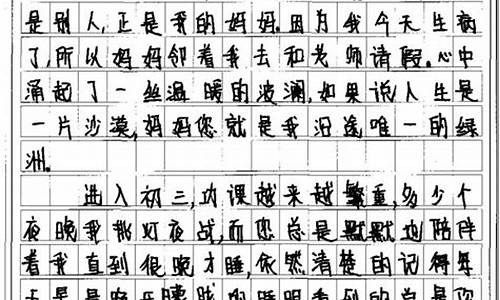 是别人,正是我的妈妈.因为我今天生病
了,所以妈妈领着我去和老师请假。心中
涌起了一丝温暖的波澜,如果说人生是
一片沙漠,妈妈您就是我沿途唯一的绿
洲。
进入初三,功课越来越繁重,多少个
夜晚我挑灯夜战,而您总是默默地陪伴
着我直到很晚才睡,依然清楚的记得每